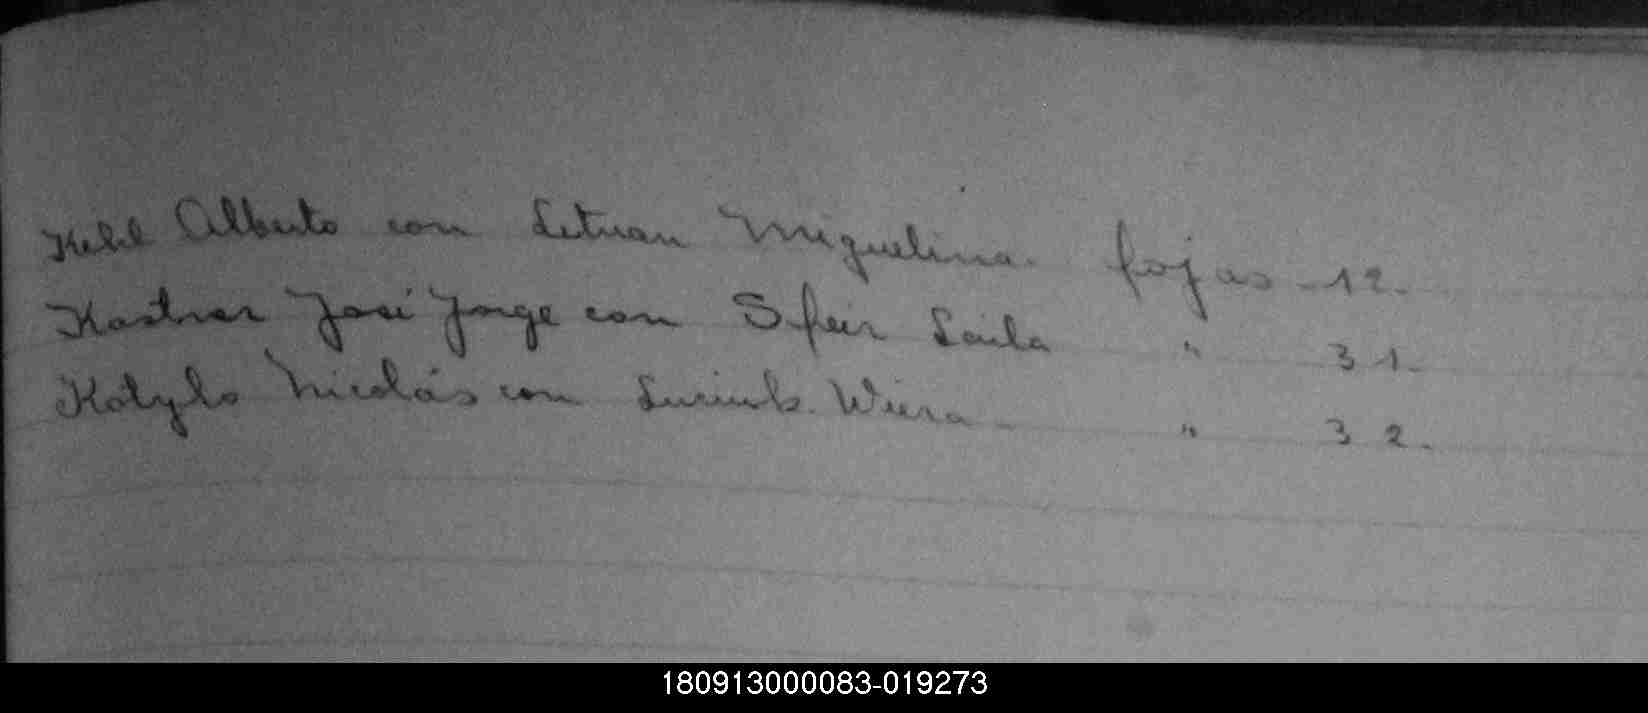 Kehl Alberto con Letuan Miguelina. fojas - 12.
Kastner José Jorge con Sfeir Laila " 31.
Kotylo Nicolás con Wiera - " 32.
180913000083-019273